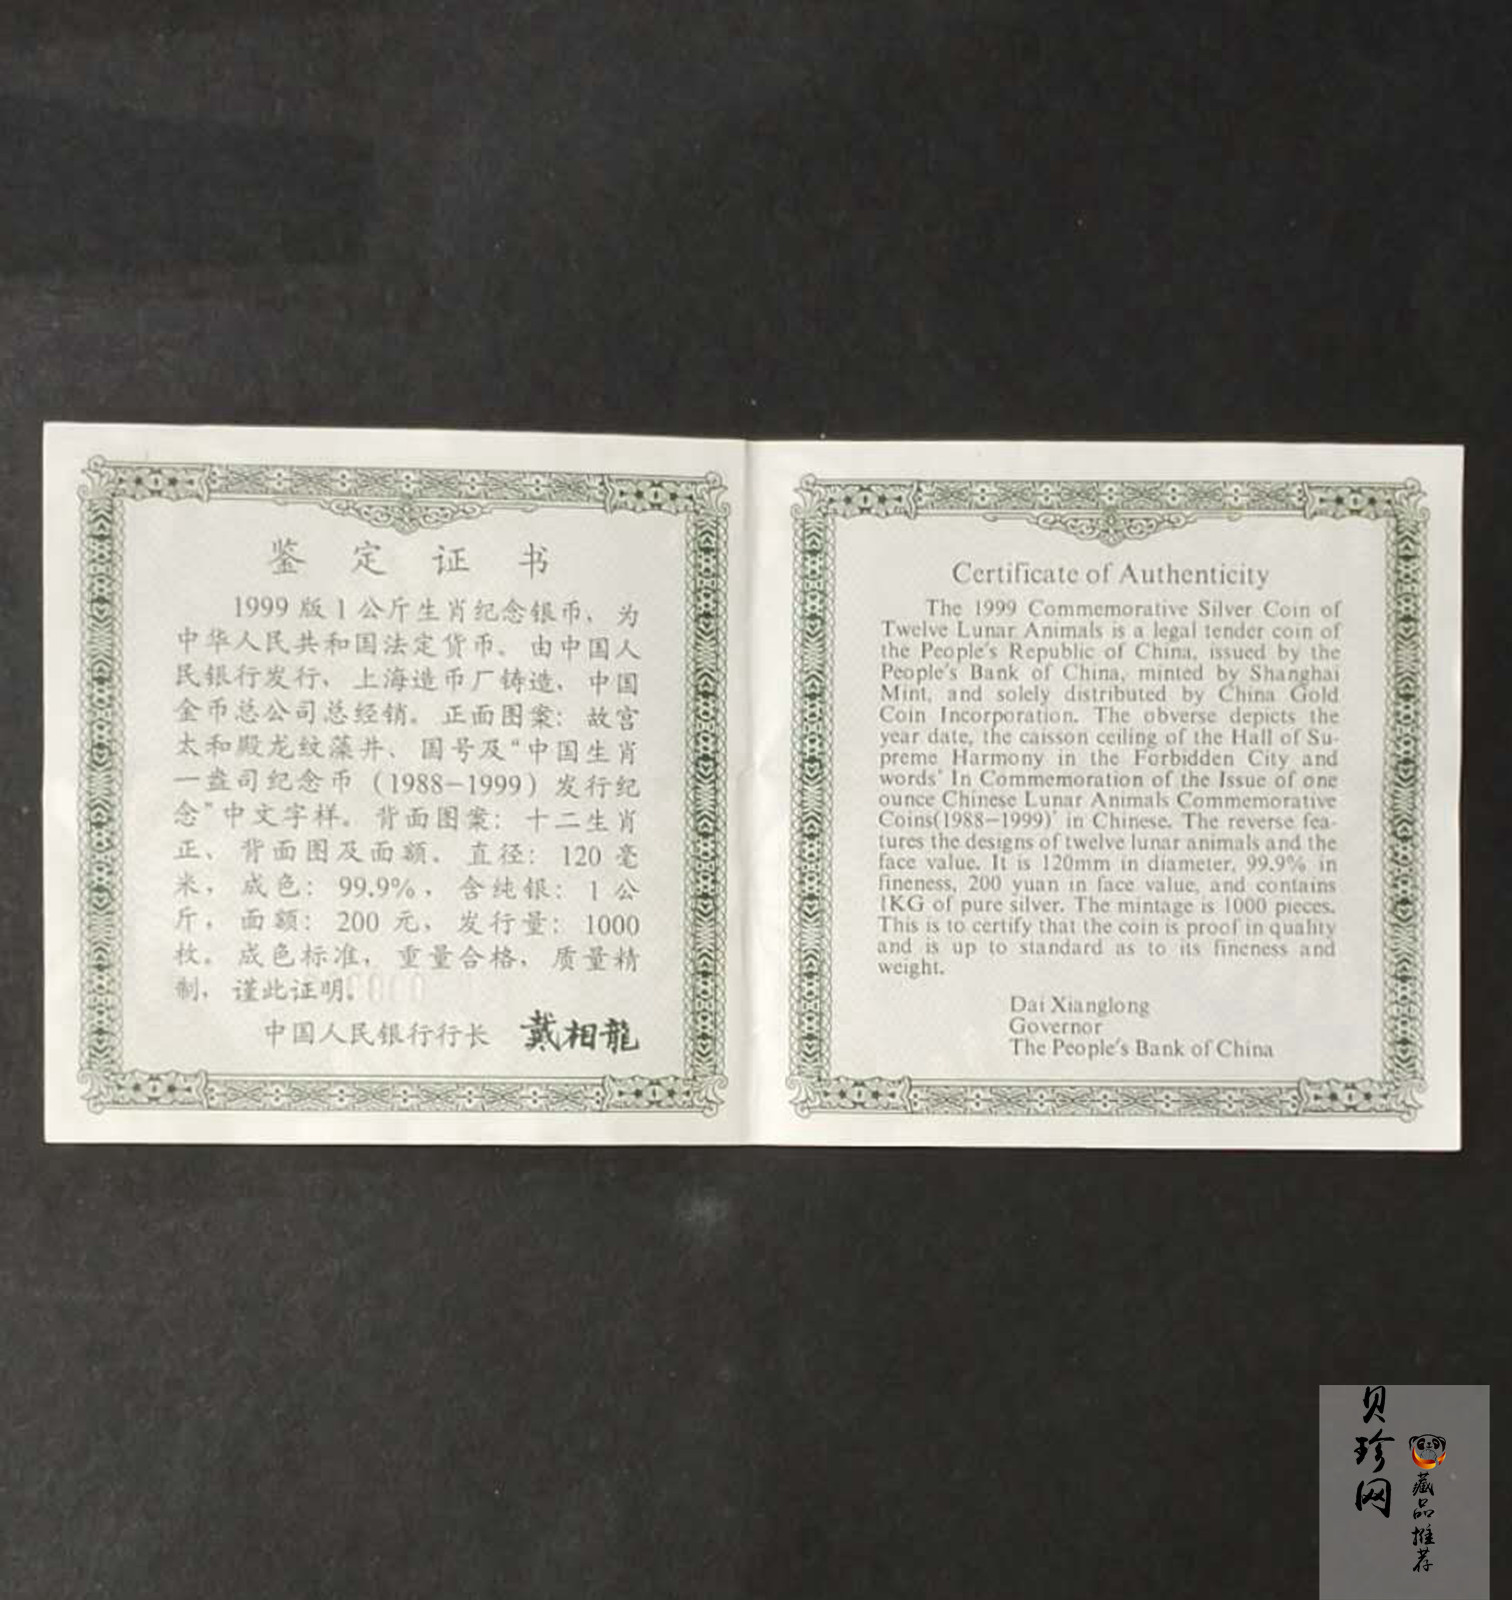 鉴定证书
1999版1公斤生肖纪念银币、为
中华人民共和国法定货币。由中国人
民银行发行，上海造币厂铸造，中国
金币总公司总经销。正面图案：故宫
太和殿龙纹藻井、国号及“中国生肖
一盎司纪念币（1988-1999）发行纪
念”中文字样。背面图案：十二生肖
正、背面图及面额。直径：120毫
米，成色：99.9%，含纯银：1公
斤，面额：200元，发行量：1000
枚。成色标准，重量合格，质量精
制，谨此证明。
中国人民银行行长 戴相龍
Certificate of Authenticity
The 1999 Commemorative Silver Coin of
Twelve Lunar Animals is a legal tender coin of
the People's Republic of China, issued by the
People's Bank of China, minted by Shanghai
Mint, and solely distributed by China Gold
Coin Incorporation. The obverse depicts the
year date, the caisson ceiling of the Hall of Su-
preme Harmony in the Forbidden City and
words' In Commemoration of the Issue of one
ounce Chinese Lunar Animals Commemorative
Coins(1988-1999)' in Chinese. The reverse fea-
tures the designs of twelve lunar animals and the
face value. It is 120mm in diameter, 99.9% in
fineness, 200 yuan in face value, and contains
1KG of pure silver. The mintage is 1000 pieces.
This is to certify that the coin is proof in quality
and is up to standard as to its fineness and
weight.
Dai Xianglong
Governor
The People's Bank of China
贝珍网
藏品推荐